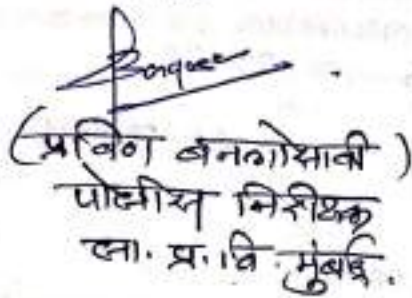 (प्रविण बनगोसावी)
पोलीस निरीक्षक
ला. प्र. वि. मुंबई.